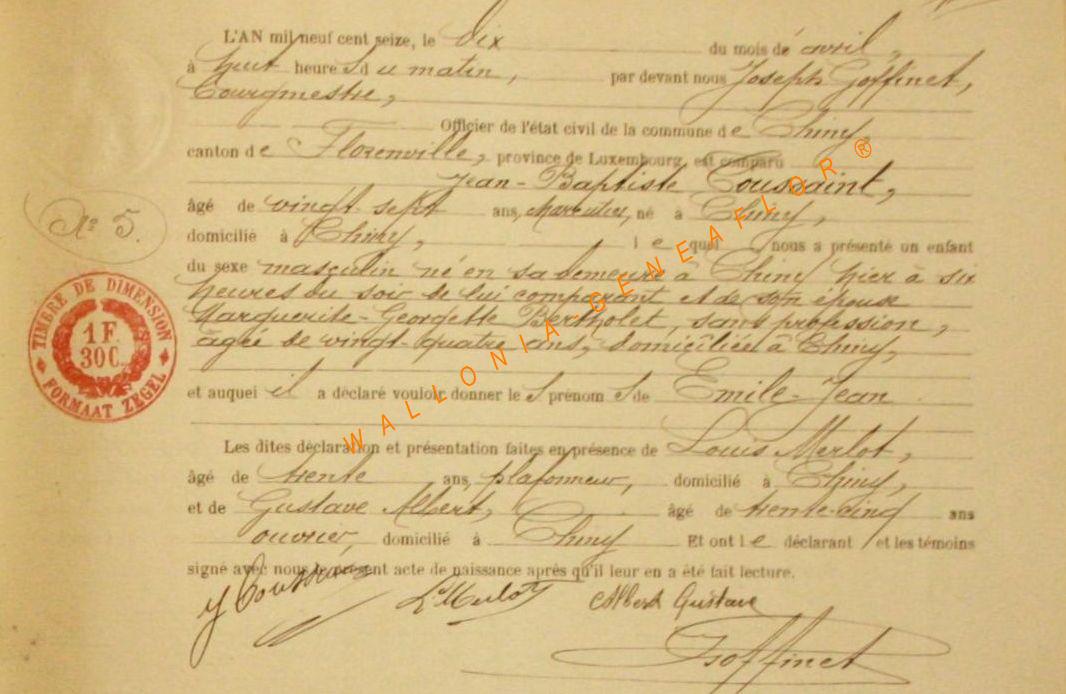 L'AN mil neuf cent seize, le dix du mois de avril,
à huit heures du matin, par devant nous Joseph Goffinet,
Bourgmestre,
Officier de l'état civil de la commune de Chiny,
canton de Florenville, province de Luxembourg, est comparu
Jean-Baptiste Toussaint,
âgé de vingt-sept ans, né à Chiny,
domicilié à Chiny, lequel nous a présenté un enfant
du sexe masculin né en sa demeure à Chiny hier à six
heures du soir de lui comparant et de son épouse
Marguerite-Georgette Bertholet, sans profession,
âgée de vingt-quatre ans, domiciliée à Chiny,
et auquel il a déclaré vouloir donner les prénoms de Emile-Jean
Les dites déclaration et présentation faites en présence de Louis Merlot,
âgé de trente ans, plafonneur, domicilié à Chiny,
et de Gustave Albert, âgé de trente-cinq ans
ouvrier, domicilié à Chiny Et ont le déclarant et les témoins
signé avec nous le présent acte de naissance après qu'il leur en a été fait lecture.
J Toussaint L Merlot Albert Gustave
Goffinet
No 5.
TIMBRE DE DIMENSION
1 F.
30 C.
FORMAAT ZEGEL
WALLONIA-GENEAFLOR®